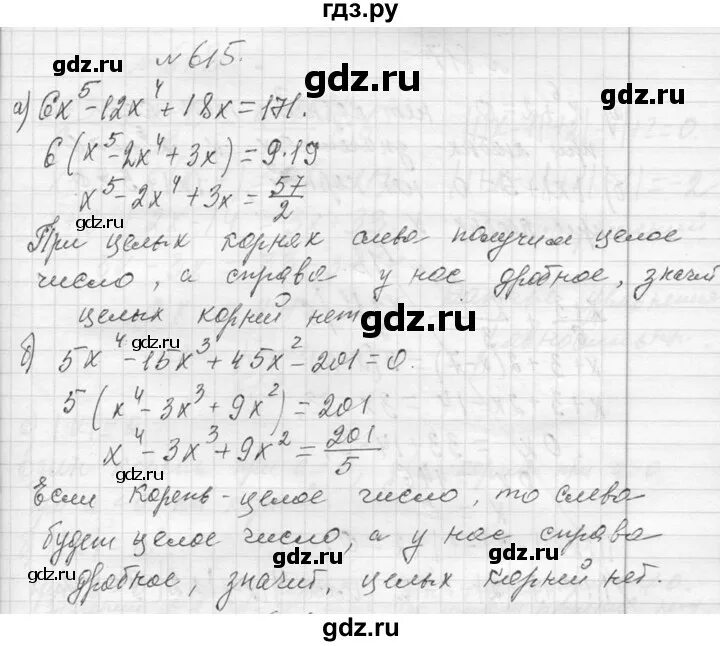 гдз.ру
№ 615.
а) 6x⁵ - 12x⁴ + 18x = 171.
6(x⁵ - 2x⁴ + 3x) = 9·19
x⁵ - 2x⁴ + 3x = 57/2
При целых корнях слева получим целое
число, а справа у нас дробное, значит
целых корней нет
gdz.ru
gdz.ru
gdz.ru
gdz.ru
б) 5x⁴ - 15x³ + 45x² - 201 = 0.
5(x⁴ - 3x³ + 9x²) = 201
x⁴ - 3x³ + 9x² = 201/5
gdz.ru
gdz.ru
Если корень - целое число, то слева
будет целое число, а у нас справа
дробное, значит, целых корней нет.
gdz.ru
gdz.ru
gdz.ru
gdz.ru